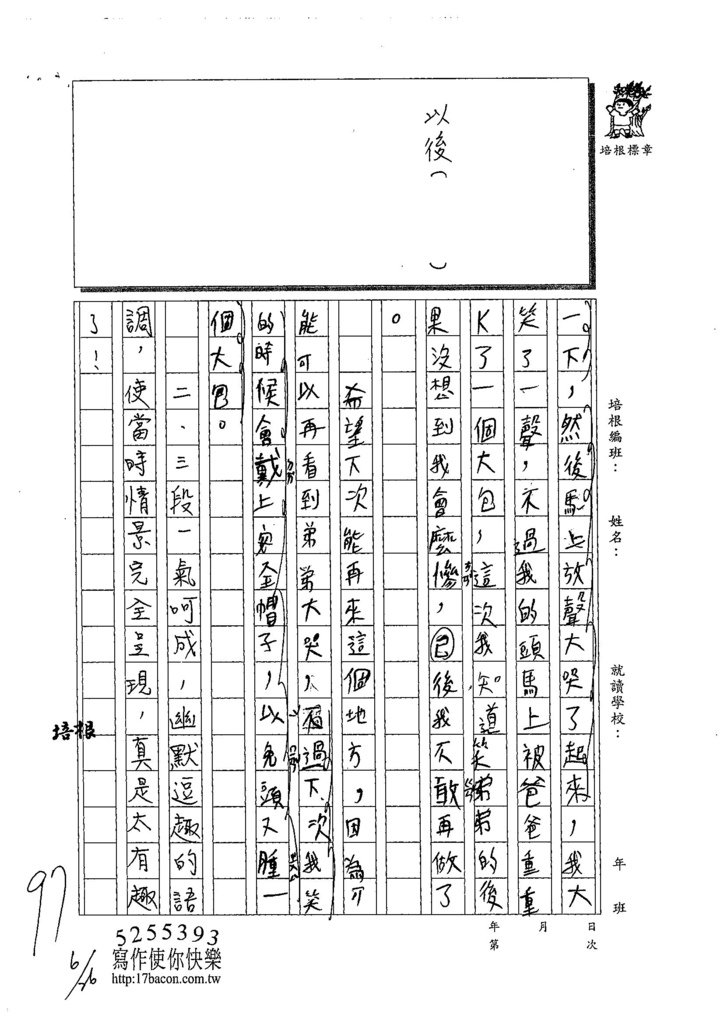 培根標章
以後（　　）
培根編班：
姓名：
就讀學校：
年　班
年　月　日
第　次
一下，然後馬上放聲大哭了起來，我大
笑了一聲，不過我的頭馬上被爸爸重重
K了一個大包，這次我知道笑弟弟的後
果沒想到我會麼慘，已後我不敢再做了
。
希望下次能再來這個地方，因為可
能可以再看到弟弟大哭，不過下次我笑
的時候會戴上安全帽子，以免頭又腫一
個大包。
二、三段一氣呵成，幽默逗趣的語
調，使當時情景完全呈現，真是太有趣
了！
培根
97
6/26
5255393
寫作使你快樂
http:17bacon.com.tw